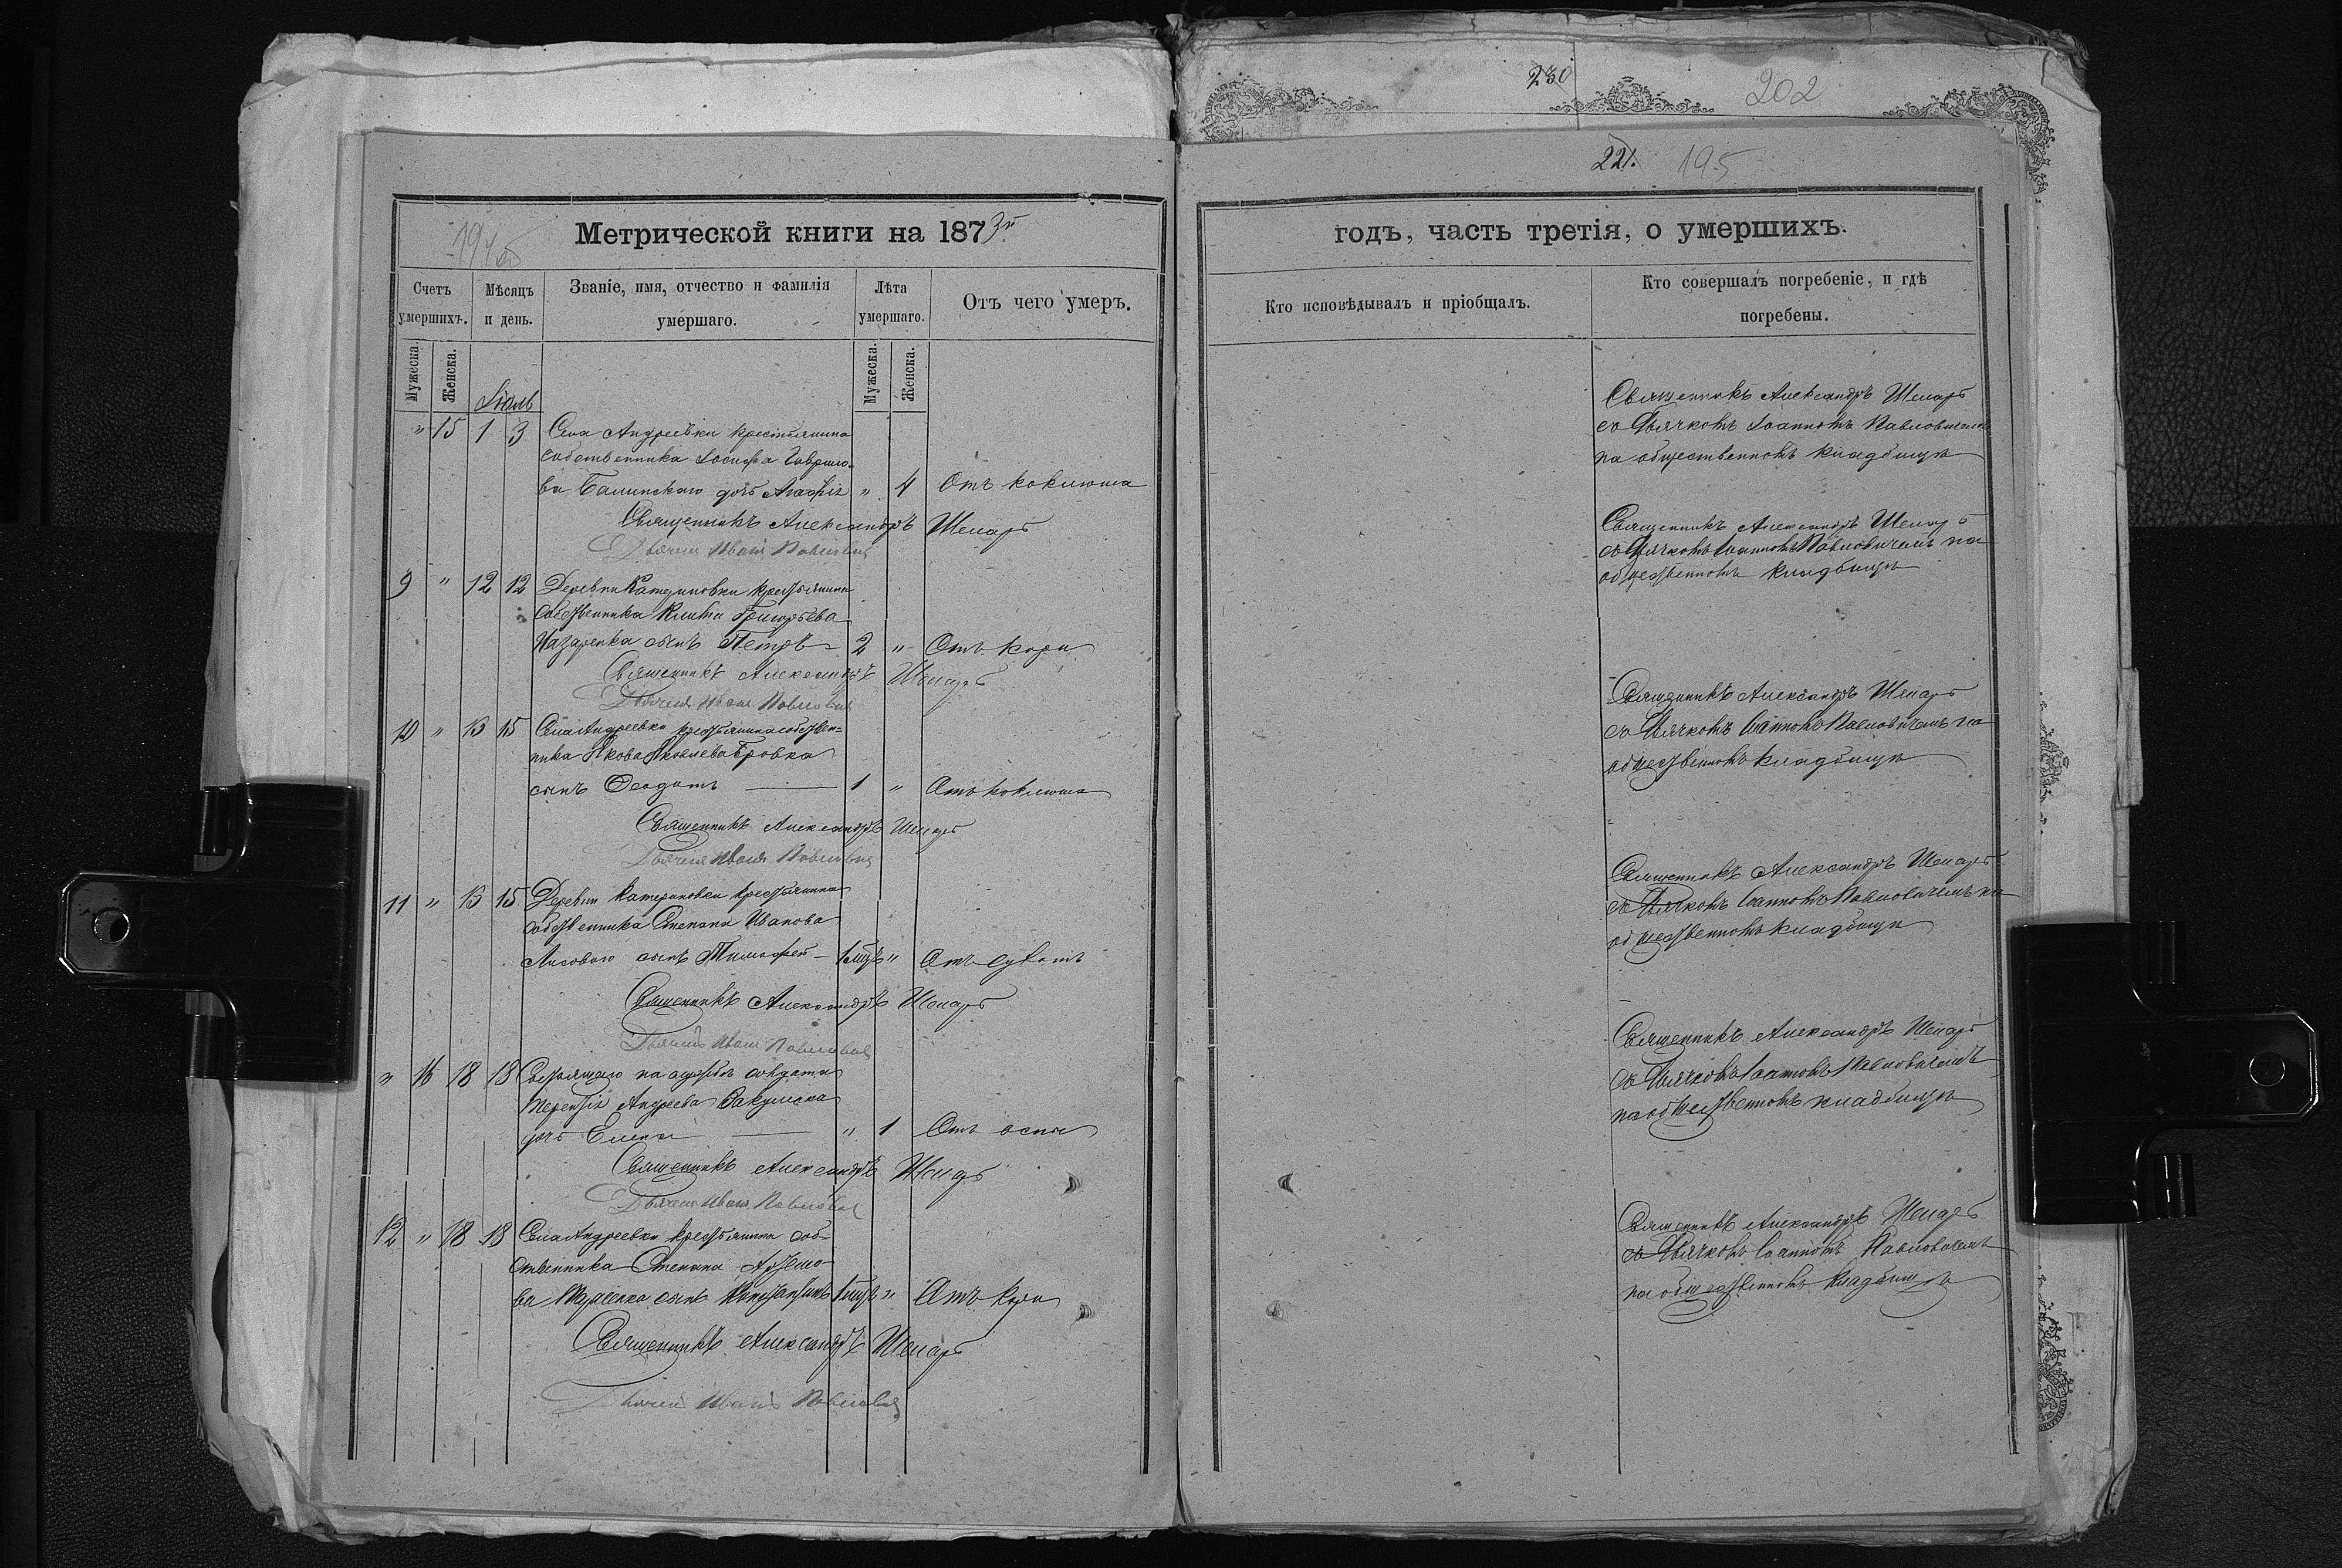 230
202
221. 195
Метрической книги на 1873й
годъ, часть третія, о умершихъ.
Счетъ умершихъ.
Мѣсяцъ и день.
Званіе, имя, отчество и фамилія умершаго.
Лѣта умершаго.
Отъ чего умеръ.
Кто исповѣдывалъ и пріобщалъ.
Кто совершалъ погребеніе, и гдѣ погребены.
Мужеска.
Женска.
Мужеска.
Женска.
" 15 1 3 Села Андреевки крестьянина
собственника Іосифа Гаврило-
ва Балинскаго дочь " 4 Отъ коклюша
Священникъ Александръ
Дьячекъ Иванъ Павловичъ
Священникъ Александръ
съ Дьячкомъ Іоанномъ Павловичемъ
на общественномъ кладбищѣ
9 " 12 12 Деревни Катериновки крестьянина
собственника Григорьева
Назаренка сынъ Петръ 2 " Отъ кори
Священникъ Александръ
Дьячекъ Иванъ Павловичъ
Священникъ Александръ
съ Дьячкомъ Іоанномъ Павловичемъ на
общественномъ кладбищѣ
10 " 13 15 Села Андреевки крестьянина собствен-
ника Якова Яковлева Бровка
сынъ Феодотъ 1 " Отъ коклюша
Священникъ Александръ
Дьячекъ Иванъ Павловичъ
Священникъ Александръ
съ Дьячкомъ Іоанномъ Павловичемъ на
общественномъ кладбищѣ
11 " 13 15 Деревни Катериновки крестьянина
собственника Степана Иванова
Лисоваго сынъ Тимофей "
Священникъ Александръ
Дьячекъ Иванъ Павловичъ
Священникъ Александръ
съ Дьячкомъ Іоанномъ Павловичемъ на
общественномъ кладбищѣ
" 16 18 18 Состоящаго на службѣ солдата
Терентія Андреева
дочь Елена " 1 Отъ оспы
Священникъ Александръ
Дьячекъ Иванъ Павловичъ
Священникъ Александръ
съ Дьячкомъ Іоанномъ Павловичемъ
на общественномъ кладбищѣ
12 " 18 18 Села Андреевки крестьянина соб-
ственника Степана
сынъ Константинъ " Отъ кори
Священникъ Александръ
Дьячекъ Иванъ Павловичъ
Священникъ Александръ
съ Дьячкомъ Іоанномъ Павловичемъ
на общественномъ кладбищѣ